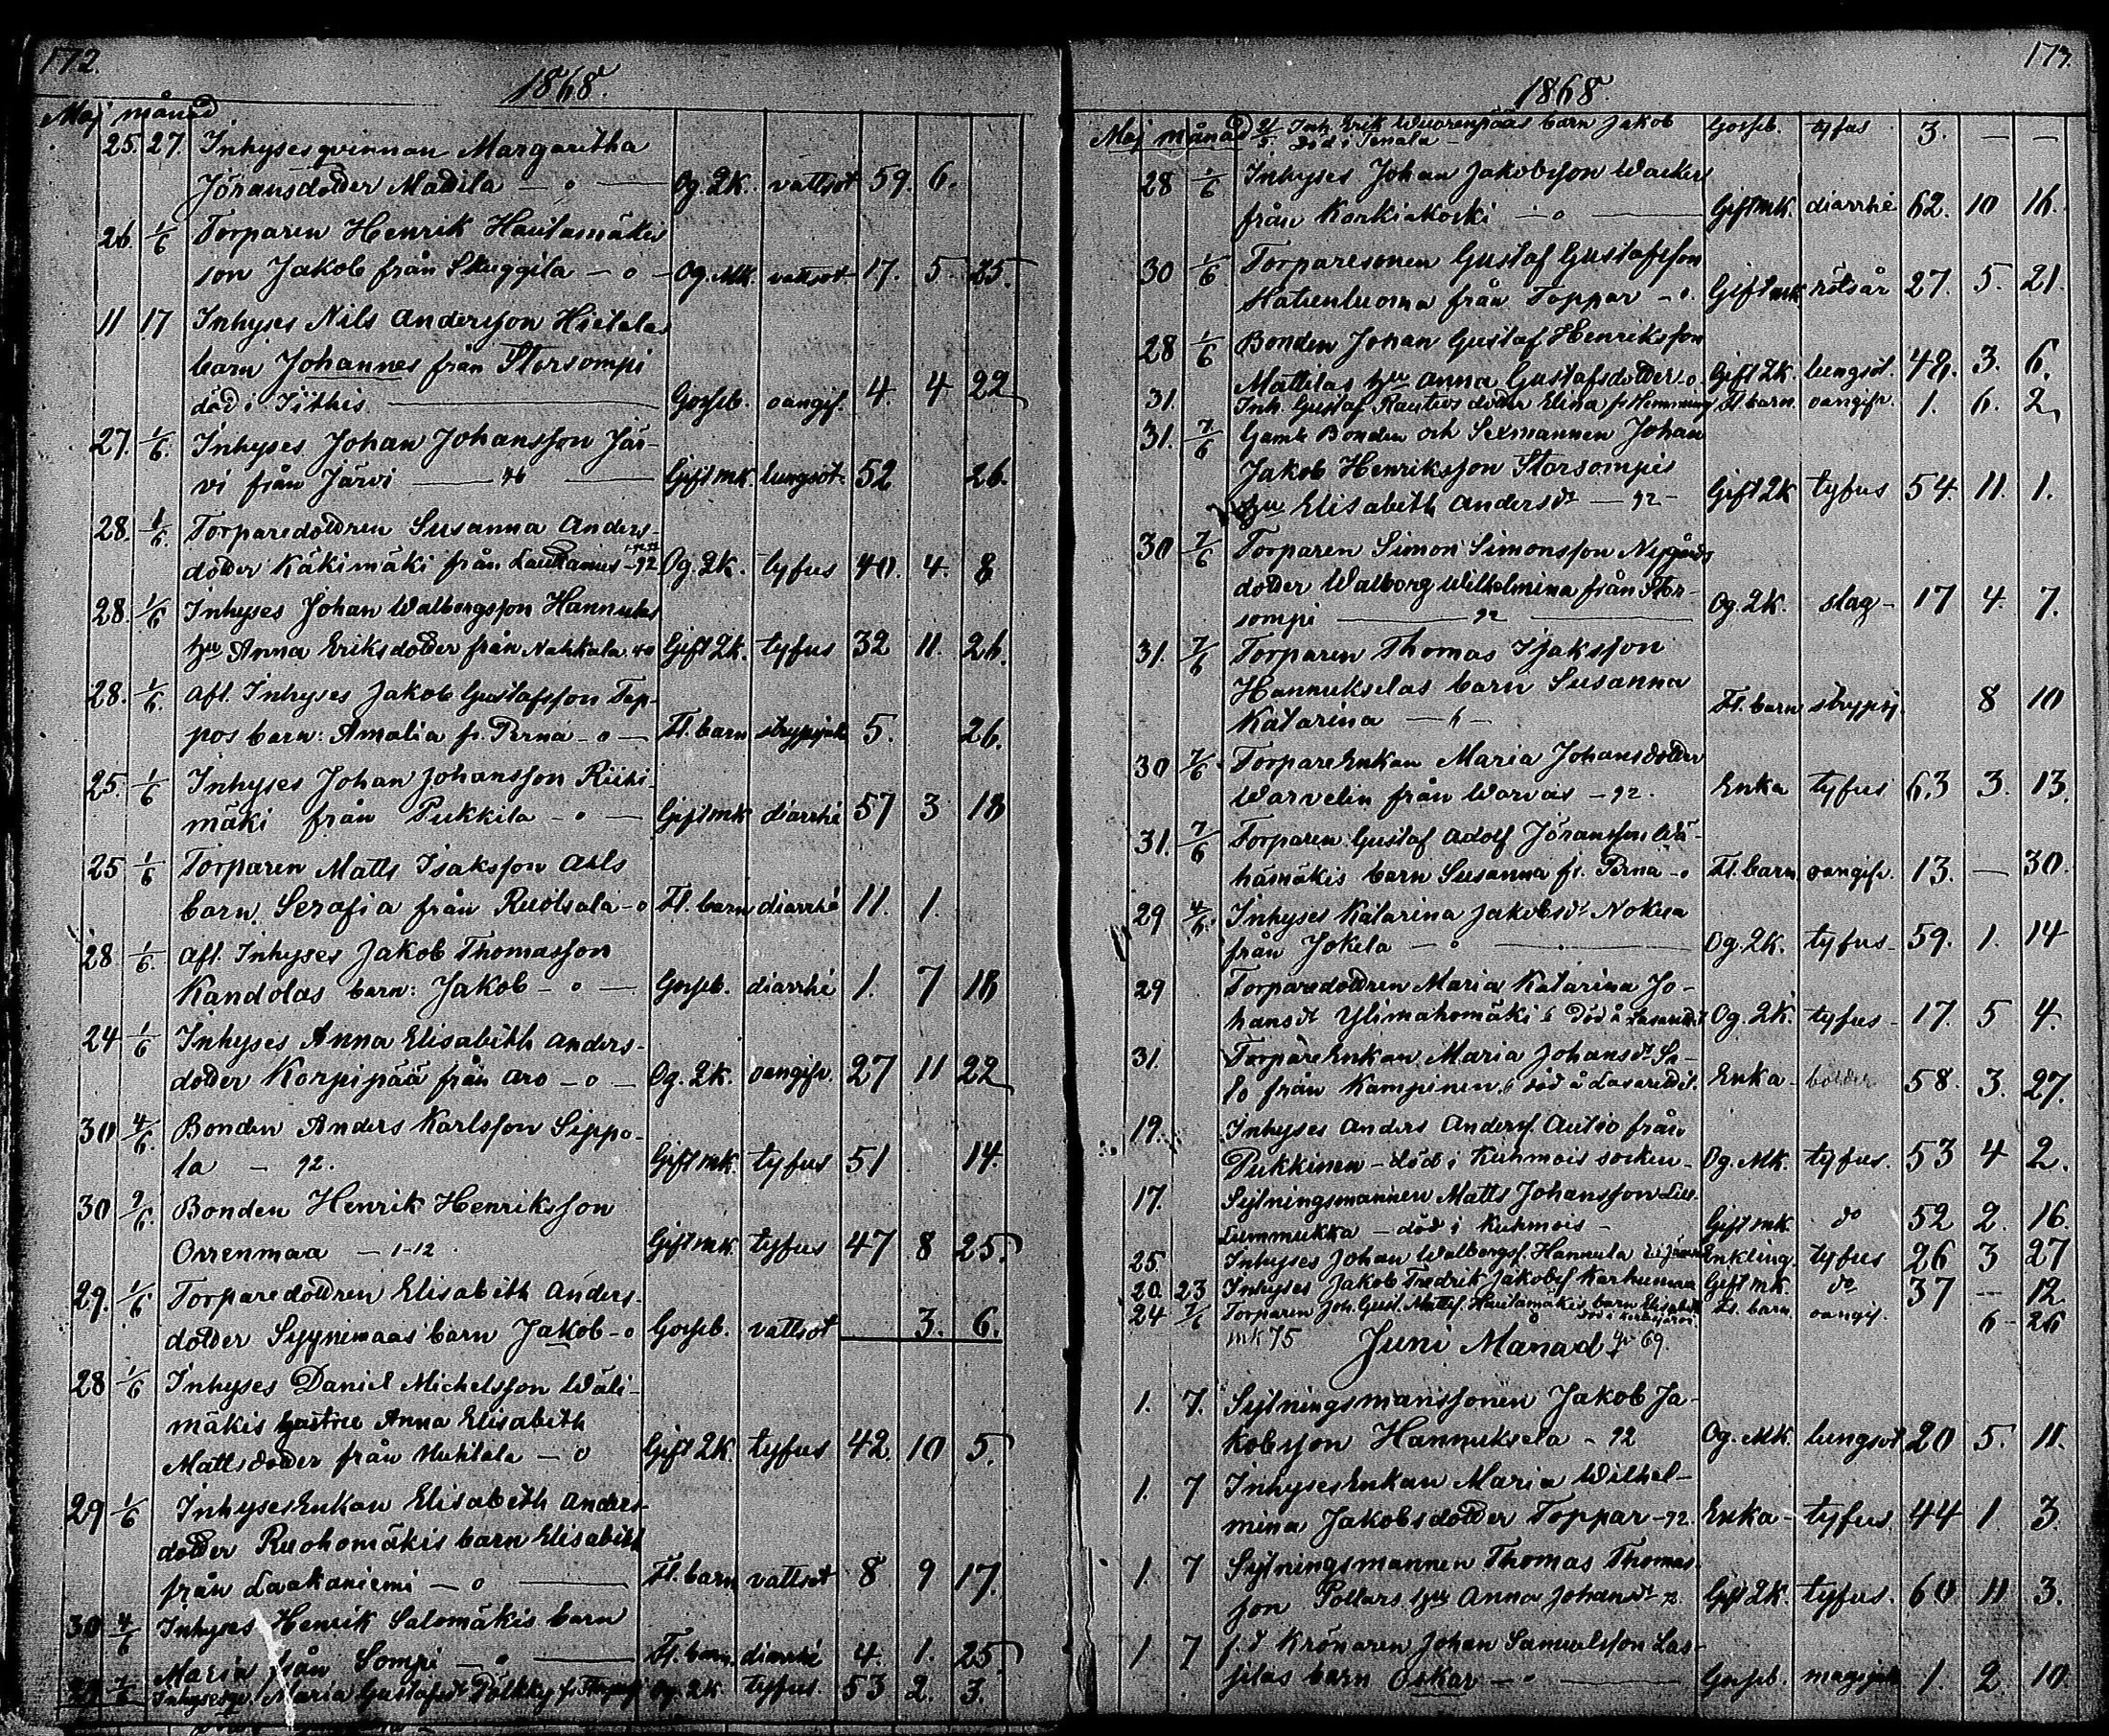 172.
1868.
Maj månad
25. 27. Inhysesqvinnan Margaretha
Jöransdotter Madila — o — Og. 2K. vattsot 59. 6.
26. 1/6 Torparen Henrik Hautamäkis
son Jakob från Skuggila — o — Og. Mk. vattsot. 17. 5 25.
11 17 Inhyses Nils Andersson Hietalas
barn Johannes från Storsompi
död i Iithis. Gosseb. oangif. 4. 4 22
27. 1/6. Inhyses Johan Johansson Jär-
vi från Järvi Gift mk. lungsot. 52 26.
28. 1/6. Torparedottren Susanna Anders-
dotter Käkimäki från - 92 Og. 2K. tyfus 40. 4. 8
28. 1/6 Inhyses Johan Walborgsson Hannulas
hu Anna Eriksdotter från Nahkala Gift 2K. tyfus 32 11. 26.
28. 1/6. Afl. Inhyses Jakob Gustafsson Top-
pos barn: Amalia fr. Perna - o — Fl. barn strypsjuk 5. 26.
25. 1/6 Inhyses Johan Johansson Riihi-
mäki från Pukkila - o — Gift mk diarrhé 57 3 18
25 1/6 Torparen Matts Isaksson Ahls
barn Serafia från Ruotsala - o Fl. barn diarrhé 11. 1.
28 1/6. Afl. Inhyses Jakob Thomasson
Kandolas barn: Jakob - o — Gosseb. diarrhé 1. 7 18
24 1/6 Inhyses Anna Elisabeth Anders-
dotter Korpipää från Aro - o — Og. 2K. oangifv. 27 11 22
30 4/6. Bonden Anders Karlsson Sippo-
la - 92. Gift mk. tyfus 51 14.
30 7/6. Bonden Henrik Henriksson
Orrenmaa — 1-12. Gift mk. tyfus 47 8 25.
29. 1/6. Torparedottren Elisabeth Anders-
dotter Syynimaas barn Jakob - o Gosseb. vattsot 3. 6.
28 1/6 Inhyses Daniel Michelsson Wäli-
mäkis hustru Anna Elisabeth
Mattsdotter från Huhtala — o Gift 2K. tyfus 42. 10 5.
29 1/6 Inhysesenkan Elisabeth Anders-
dotter Ruohomäkis barn Elisabeth
från Laakaniemi — o Fl. barn vattsot 8 9 17.
30 4/6 Inhyses Henrik Salomäkis barn
Maria från Sompi — o Fl. barn. diarrhé 4. 1. 25.
29 7/6 Inhysesqv. Maria Gustafsdt Pölkky fr. Og. 2K tyfus. 53 2. 3.
173.
1868.
Maj månad 21/5. Inh. Erik Wuorenpääs barn Jakob Gosseb. tyfus 3. — —
död i
28 1/6 Inhyses Johan Jakobsson Wacker
från Korkiakoski — o — Gift mk. diarrhé 62. 10 16.
30 1/6 Torparesonen Gustaf Gustafsson
Hatunluoma från Toppar - o. Gift mk rötsår 27. 5. 21.
28 1/6 Bonden Johan Gustaf Henriksson
Mattilas hu Anna Gustafsdotter o. Gift 2K. lungsot. 48. 3. 6.
31. Inh. Gustaf Rautios dotter Elina fr Hemming Fl. barn. oangifv. 1. 6. 2
31. 7/6 Gamle Bonden och Sexmannen Johan
Jakob Henriksson Storsompis
hu Elisabeth Andersdt — 92 - Gift 2K tyfus 54. 11. 1.
30 7/6 Torparen Simon Simonsson Nygårds
dotter Walborg Wilhelmina från Stor-
sompi — 92 — Og. 2K. slag - 17 4. 7.
31. 7/6 Torparen Thomas Isaksson
Hannukselas barn Susanna
Katarina Fl. barn strypsj. 8 10
30 7/6. Torpareenkan Maria Johansdotter
Warvelin från Warvas - 92. Enka tyfus 63 3. 13.
31. 7/6 Torparen Gustaf Adolf Jöransson Wä-
hämäkis barn Susanna fr. Perna - o Fl. barn. oangifv. 13. — 30.
29 4/6. Inhyses Katarina Jakobsdt Nokua
från Jokela — o — Og. 2K. tyfus - 59. 1. 14
29 Torparedottren Maria Katarina Jo-
hansdt Ylimahomäki död å Lasarettet Og. 2K. tyfus - 17. 5 4.
31. Torpareenkan Maria Johansdt Sa-
lo från Kampinen, död å Lasarettet. Enka - bölder 58. 3. 27.
19. Inhyses Anders Anderss. Autio från
Pukkinen - död i Kuhmois socken - Og. Mk. tyfus. 53 4 2.
17. Sytningsmannen Matts Johansson Liu-
Lummukka - död i Kuhmois - Gift mk. do 52 2. 16.
25. Inhyses Johan Walborgss. Hannula Enkling. tyfus 26 3 27
20. 23 Inhyses Jakob Fredrik Jakobss. Karhumaa Gift mk. do 37 — 12.
24 7/6 Torparen Joh. Gust. Mattss. Hautamäkis barn Elisabeth Fl. barn. oangif. 6 - 26
mk 75 Juni Månad 69.
1. 7. Sytningsmanssonen Jakob Ja-
kobsson Hannuksela - 92 Og. Mk. lungsot 20 5. 11.
1. 7 Inhysesenkan Maria Wilhel-
mina Jakobsdotter Toppar - 92. Enka - tyfus. 44 1. 3.
1. 7 Sytningsmannen Thomas Thomas-
son Pollars hu Anna Johansdt Gift 2K. tyfus. 60 11 3.
1. 7 f.d Krönaren Johan Samuelsson Las-
silas barn Oskar — o — Gosseb. magsjuk 1. 2. 10.